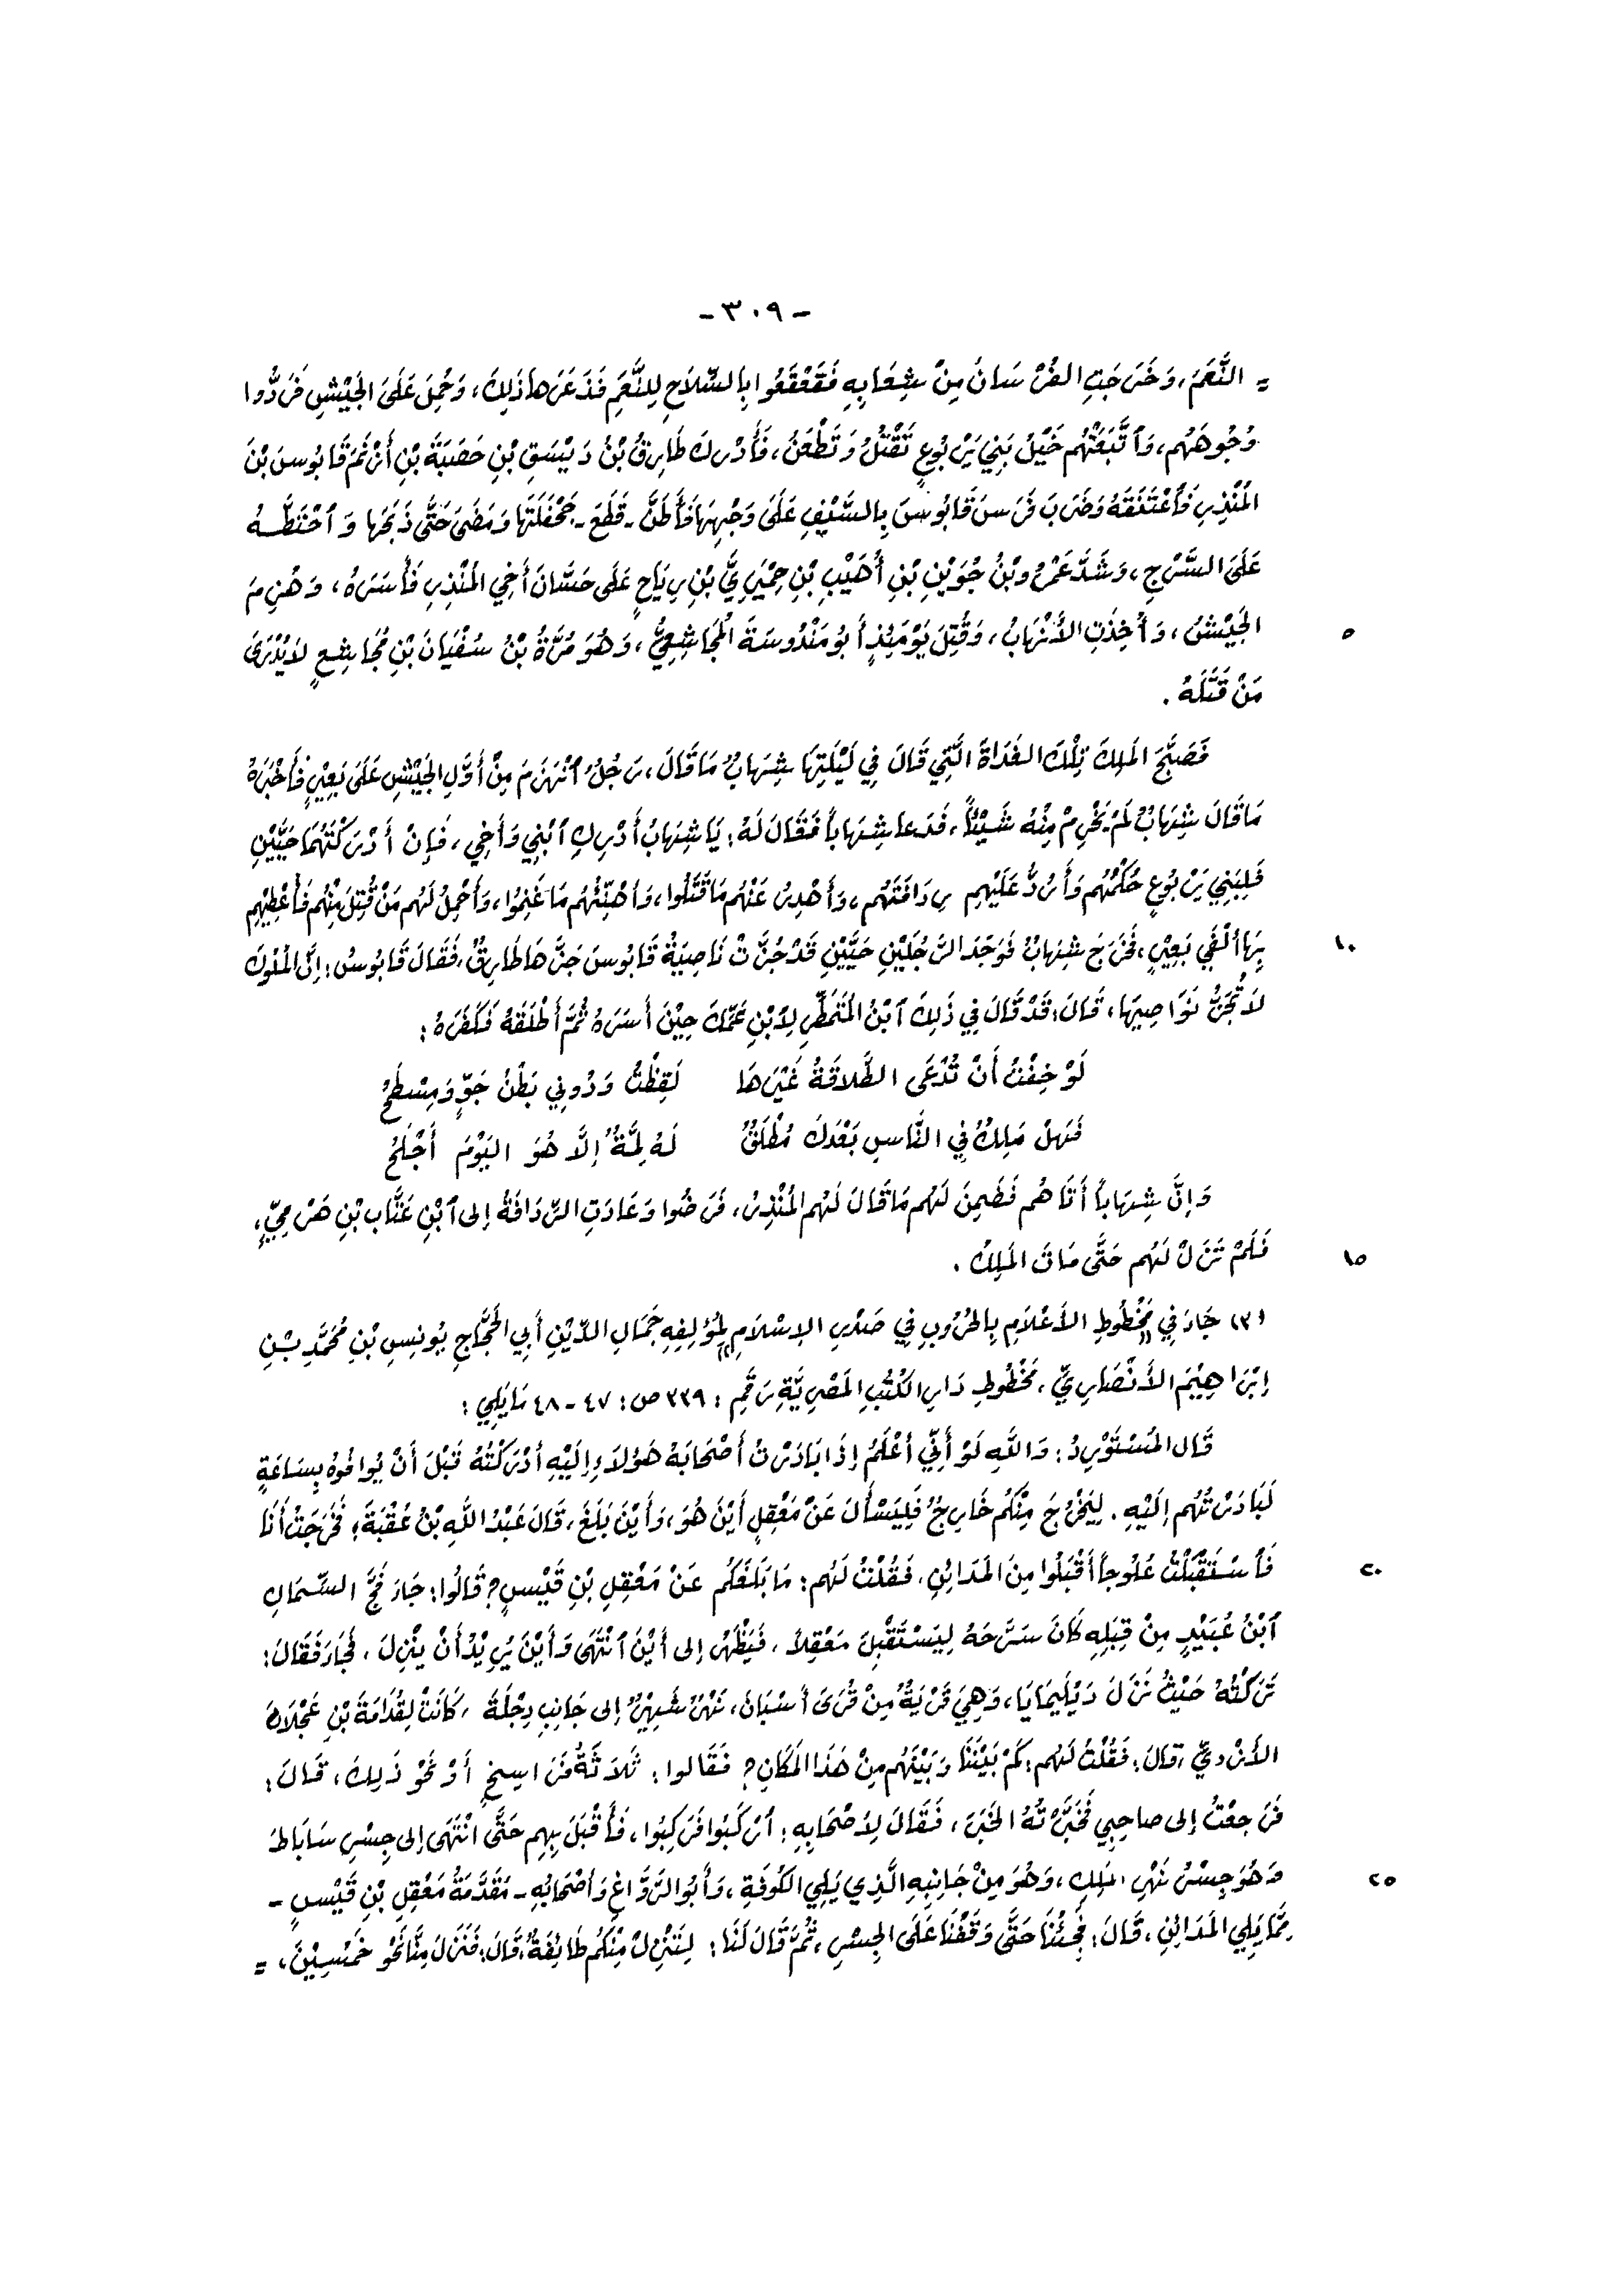 - ٣٠٩ -
= النَّعَمَ، وَخَرَجَتِ الفُرْسَانُ مِنْ شِعَابِهِ فَقَعْقَعُوا بِالسِّلَاحِ لِلنَّعَمِ فَذَعَرَهَا ذَلِكَ، وَحُمِلَ عَلَى الجَيْشِ فَرَدُّوا
وُجُوهَهُم، وَٱتَّبَعَتْهُم خَيْلُ بَنِي يَرْبُوعٍ تَقْتُلُ وَتَطْعَنُ، فَأَدْرَكَ طَارِقُ بْنُ دَيْسَقِ بْنِ حَصَبَةَ بْنِ أَزْنَمَ قَابُوسَ بْنَ
المُنْذِرِ فَٱعْتَنَقَهُ وَضَرَبَ فَرَسَ قَابُوسَ بِالسَّيْفِ عَلَى وَجْهِهَا فَأَطَنَّ - قَطَعَ - جَحْفَلَتَهَا وَمَضَى حَتَّى ذَبَحَهَا وَٱحْتَطَّهُ
عَلَى السَّرْجِ، وَشَدَّ عَمْرُو بْنُ جُوَيْنِ بْنِ أُهَيْبِ بْنِ حِمْيَرِيَّ بْنِ رِيَاحٍ عَلَى حَسَّانَ أَخِي المُنْذِرِ فَأَسَرَهُ، وَهُزِمَ
الجَيْشُ، وَأُخِذَتِ الأَنْهَابُ، وَقُتِلَ يَوْمَئِذٍ أَبُو مَنْدُوسَةَ المُجَاشِعِيُّ، وَهُوَ مُرَّةُ بْنُ سُفْيَانَ بْنِ مُجَاشِعٍ لَا يُدْرَى
٥
مَنْ قَتَلَهُ .
فَصَبَّحَ المَلِكَ تِلْكَ الغَدَاةَ الَّتِي قَالَ فِي لَيْلَتِهَا شِهَابٌ مَا قَالَ، رَجُلٌ ٱنْهَزَمَ مِنْ أَوَّلِ الجَيْشِ عَلَى بَعِيْرٍ فَأَخْبَرَهُ
مَا قَالَ شِهَابٌ لَمْ يَخْرِمْ مِنْهُ شَيْئاً، فَدَعا شِهَاباً فَقَالَ لَهُ: يَا شِهَابُ أَدْرِكِ ٱبْنِي وَأَخِي، فَإِنْ أَدْرَكْتَهُمَا حَيَّيْنِ
فَلِبَنِي يَرْبُوعٍ حُكْمُهُم وَأَرُدُّ عَلَيْهِم رِدَافَتَهُم، وَأَهْدِرُ عَنْهُم مَا قَتَلُوا، وَأُهَنِّئُهُم مَا غَنِمُوا، وَأَحْمِلُ لَهُم مَنْ قُتِلَ مِنْهُم فَأُعْطِيْهِم
بِهَا أَلْفَي بَعِيْرٍ، فَخَرَجَ شِهَابٌ فَوَجَدَ الرَّجُلَيْنِ حَيَّيْنِ قَدْ جُزَّتْ نَاصِيَةُ قَابُوسَ جَزَّهَا طَارِقٌ، فَقَالَ قَابُوسُ: إِنَّ المُلُوكَ
١٠
لَا تُجَزُّ نَوَاصِيهَا، قَالَ: قَدْ قَالَ فِي ذَلِكَ ٱبْنُ المُتَمَطِّرِ لِٱبْنِ عَمِّكَ حِيْنَ أَسَرَهُ ثُمَّ أَطْلَقَهُ فَكَفَرَهُ:
لَوْ خِفْتُ أَنْ تُدْعَى الطَّلَاقَةُ غَيْرَهَا لَقِظْتُ وَدُونِي بَطْنُ جَوٍّ وَمِسْطَحُ
فَهَلْ مَلِكٌ فِي النَّاسِ بَعْدَكَ مُطْلَقٌ لَهُ لِمَّةٌ إِلَّا هُوَ اليَوْمَ أَجْلَحُ
وَإِنَّ شِهَاباً أَتَاهُم فَضَمِنَ لَهُم مَا قَالَ لَهُم المُنْذِرُ، فَرَضُوا وَعَادَتِ الرِّدَافَةُ إِلى ٱبْنِ عَتَّاب بْنِ هَرْمِيٍّ،
فَلَمْ تَزَلْ لَهُم حَتَّى مَاتَ المَلِكُ .
١٥
(٣) جَاءَ فِي مَخْطُوطِ «الأَعْلَامِ بِالحُرُوبِ فِي صَدْرِ الإِسْلَامِ» لِمُؤَلِفِهِ جَمَالِ الدِّيْنِ أَبِي الحَجَّاجِ يُونِسَ بْنِ مُحَمَّدِ بْنِ
إِبْرَاهِيْمَ الأَنْصَارِيِّ، مَخْطُوطِ دَارِ الكُتُبِ المَصْرِيَّةِ رَقَمِ: ٣٣٩ ص: ٤٧ - ٤٨ مَا يَلِي:
قَالَ المُسْتَوْرِدُ: وَاللَّهِ لَوْ أَنِّي أَعْلَمُ إِذَا بَادَرْتُ أَصْحَابَهُ هَؤُلَاءِ إِلَيْهِ أَدْرَكْتُهُ قَبْلَ أَنْ يُوافُوهُ بِسَاعَةٍ
لَبَادَرْتُهُم إِلَيْهِ. لِيَخْرُجَ مِنْكُم خَارِجٌ فَلِيَسْأَلَ عَنْ مَعْقِلٍ أَيْنَ هُوَ، وَأَيْنَ بَلَغَ، قَالَ عَبْدُ اللَّهِ بْنُ عُقْبَةَ: فَخَرَجَتُ أَنَا
فَٱسْتَقْبَلْتُ عُلُوجاً أَقْبَلُوا مِنَ المَدَائِنِ، فَقُلْتُ لَهُم: مَا بَلَغَكُم عَنْ مَعْقِلِ بْنِ قَيْسٍ؟ قَالُوا: جَاءَ فَجَّ السِّمَاكِ
٢٠
ٱبْنُ عُبَيْدٍ مِنْ قِبَلِهِ كَانَ سَرَّحَهُ لِيَسْتَقْبِلَ مَعْقِلاً، فَيَنْظُرَ إِلى أَيْنَ ٱنْتَهَى وَأَيْنَ يُرِيْدُ أَنْ يَنْزِلَ، فَجَاءَ فَقَالَ:
تَرَكْتُهُ حَيْثُ نَزَلَ دَيْلِيمَايَا، وَهِيَ قَرْيَةٌ مِنْ قُرَى أُسْبَانَ، نَهْرَ شَهِيْرٌ إِلى جَانِبِ دِجْلَةَ، كَانَتْ لِقُدَامَةَ بْنِ عَجْلَانَ
الأَزْدِيِّ، قَالَ: فَقُلْتُ لَهُم: كَمْ بَيْنَنَا وَبَيْنَهُم مِنْ هَذَا المَكَانِ؟ فَقَالوا: ثَلَاثَةُ فَرَاسِخٍ أَوْ نَحْوَ ذَلِكَ، قَالَ:
فَرَجِعْتُ إِلى صاحِبِي فَخَبَّرْتُهُ الخَبَرَ، فَقَالَ لِأَصْحَابِهِ: ٱرْكَبُوا فَرَكِبُوا، فَأَقْبَلَ بِهِم حَتَّى انْتَهَى إِلى جِسْرِ سَابَاطَ
وَهُوَ جِسْرُ نَهْرِ المَلِكِ، وَهُوَ مِنْ جَانِبِهِ الَّذِي يَلِي الكُوفَةِ، وَأَبُو الرَّوَّاغِ وَأَصْحَابُهِ - مُقَدَّمَةُ مَعْقِلِ بْنِ قَيْسٍ -
٢٥
مِمَّا يَلِي المَدَائِنِ، قَالَ: فَجِئْنَا حَتَّى وَقَفْنَا عَلَى الجِسْرِ، ثُمَّ قَالَ لَنَا: لِتَنْزِلْ مِنْكُم طَائِفَةٌ، قَالَ: فَنَزَلَ مِنَّا نَحْوَ خَمْسِيْنَ، =